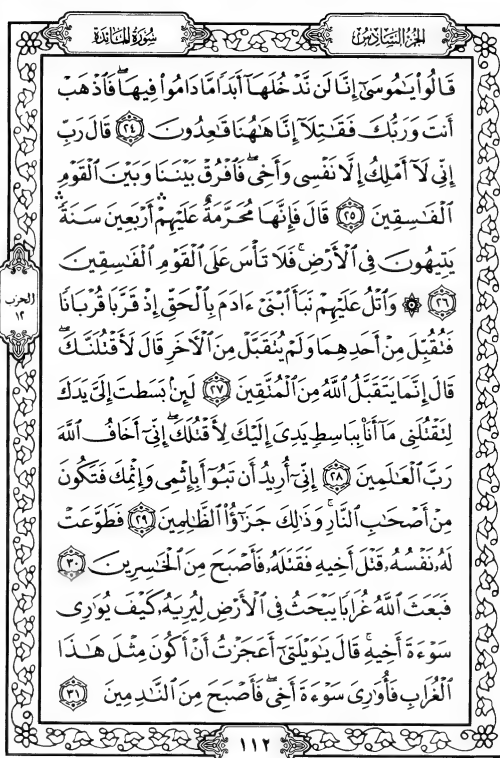 سُورَةُ المَائدَةِ
الجُزءُ السَّادِسُ
قَالُواْ يَٰمُوسَىٰٓ إِنَّا لَن نَّدۡخُلَهَآ أَبَدٗا مَّا دَامُواْ فِيهَا فَٱذۡهَبۡ
أَنتَ وَرَبُّكَ فَقَٰتِلَآ إِنَّا هَٰهُنَا قَٰعِدُونَ ٢٤ قَالَ رَبِّ
إِنِّي لَآ أَمۡلِكُ إِلَّا نَفۡسِي وَأَخِيۖ فَٱفۡرُقۡ بَيۡنَنَا وَبَيۡنَ ٱلۡقَوۡمِ
ٱلۡفَٰسِقِينَ ٢٥ قَالَ فَإِنَّهَا مُحَرَّمَةٌ عَلَيۡهِمۡۛ أَرۡبَعِينَ سَنَةٗۛ
يَتِيهُونَ فِي ٱلۡأَرۡضِۚ فَلَا تَأۡسَ عَلَى ٱلۡقَوۡمِ ٱلۡفَٰسِقِينَ
٢٦ ۞ وَٱتۡلُ عَلَيۡهِمۡ نَبَأَ ٱبۡنَيۡ ءَادَمَ بِٱلۡحَقِّ إِذۡ قَرَّبَا قُرۡبَانٗا
فَتُقُبِّلَ مِنۡ أَحَدِهِمَا وَلَمۡ يُتَقَبَّلۡ مِنَ ٱلۡأٓخَرِ قَالَ لَأَقۡتُلَنَّكَۖ
قَالَ إِنَّمَا يَتَقَبَّلُ ٱللَّهُ مِنَ ٱلۡمُتَّقِينَ ٢٧ لَئِنۢ بَسَطتَ إِلَيَّ يَدَكَ
لِتَقۡتُلَنِي مَآ أَنَا۠ بِبَاسِطٖ يَدِيَ إِلَيۡكَ لِأَقۡتُلَكَۖ إِنِّيٓ أَخَافُ ٱللَّهَ
رَبَّ ٱلۡعَٰلَمِينَ ٢٨ إِنِّيٓ أُرِيدُ أَن تَبُوٓأَ بِإِثۡمِي وَإِثۡمِكَ فَتَكُونَ
مِنۡ أَصۡحَٰبِ ٱلنَّارِۚ وَذَٰلِكَ جَزَٰٓؤُاْ ٱلظَّٰلِمِينَ ٢٩ فَطَوَّعَتۡ
لَهُۥ نَفۡسُهُۥ قَتۡلَ أَخِيهِ فَقَتَلَهُۥ فَأَصۡبَحَ مِنَ ٱلۡخَٰسِرِينَ ٣٠
فَبَعَثَ ٱللَّهُ غُرَابٗا يَبۡحَثُ فِي ٱلۡأَرۡضِ لِيُرِيَهُۥ كَيۡفَ يُوَٰرِي
سَوۡءَةَ أَخِيهِۚ قَالَ يَٰوَيۡلَتَىٰٓ أَعَجَزۡتُ أَنۡ أَكُونَ مِثۡلَ هَٰذَا
ٱلۡغُرَابِ فَأُوَٰرِيَ سَوۡءَةَ أَخِيۖ فَأَصۡبَحَ مِنَ ٱلنَّٰدِمِينَ ٣١
الحزب
١٢
١١٢